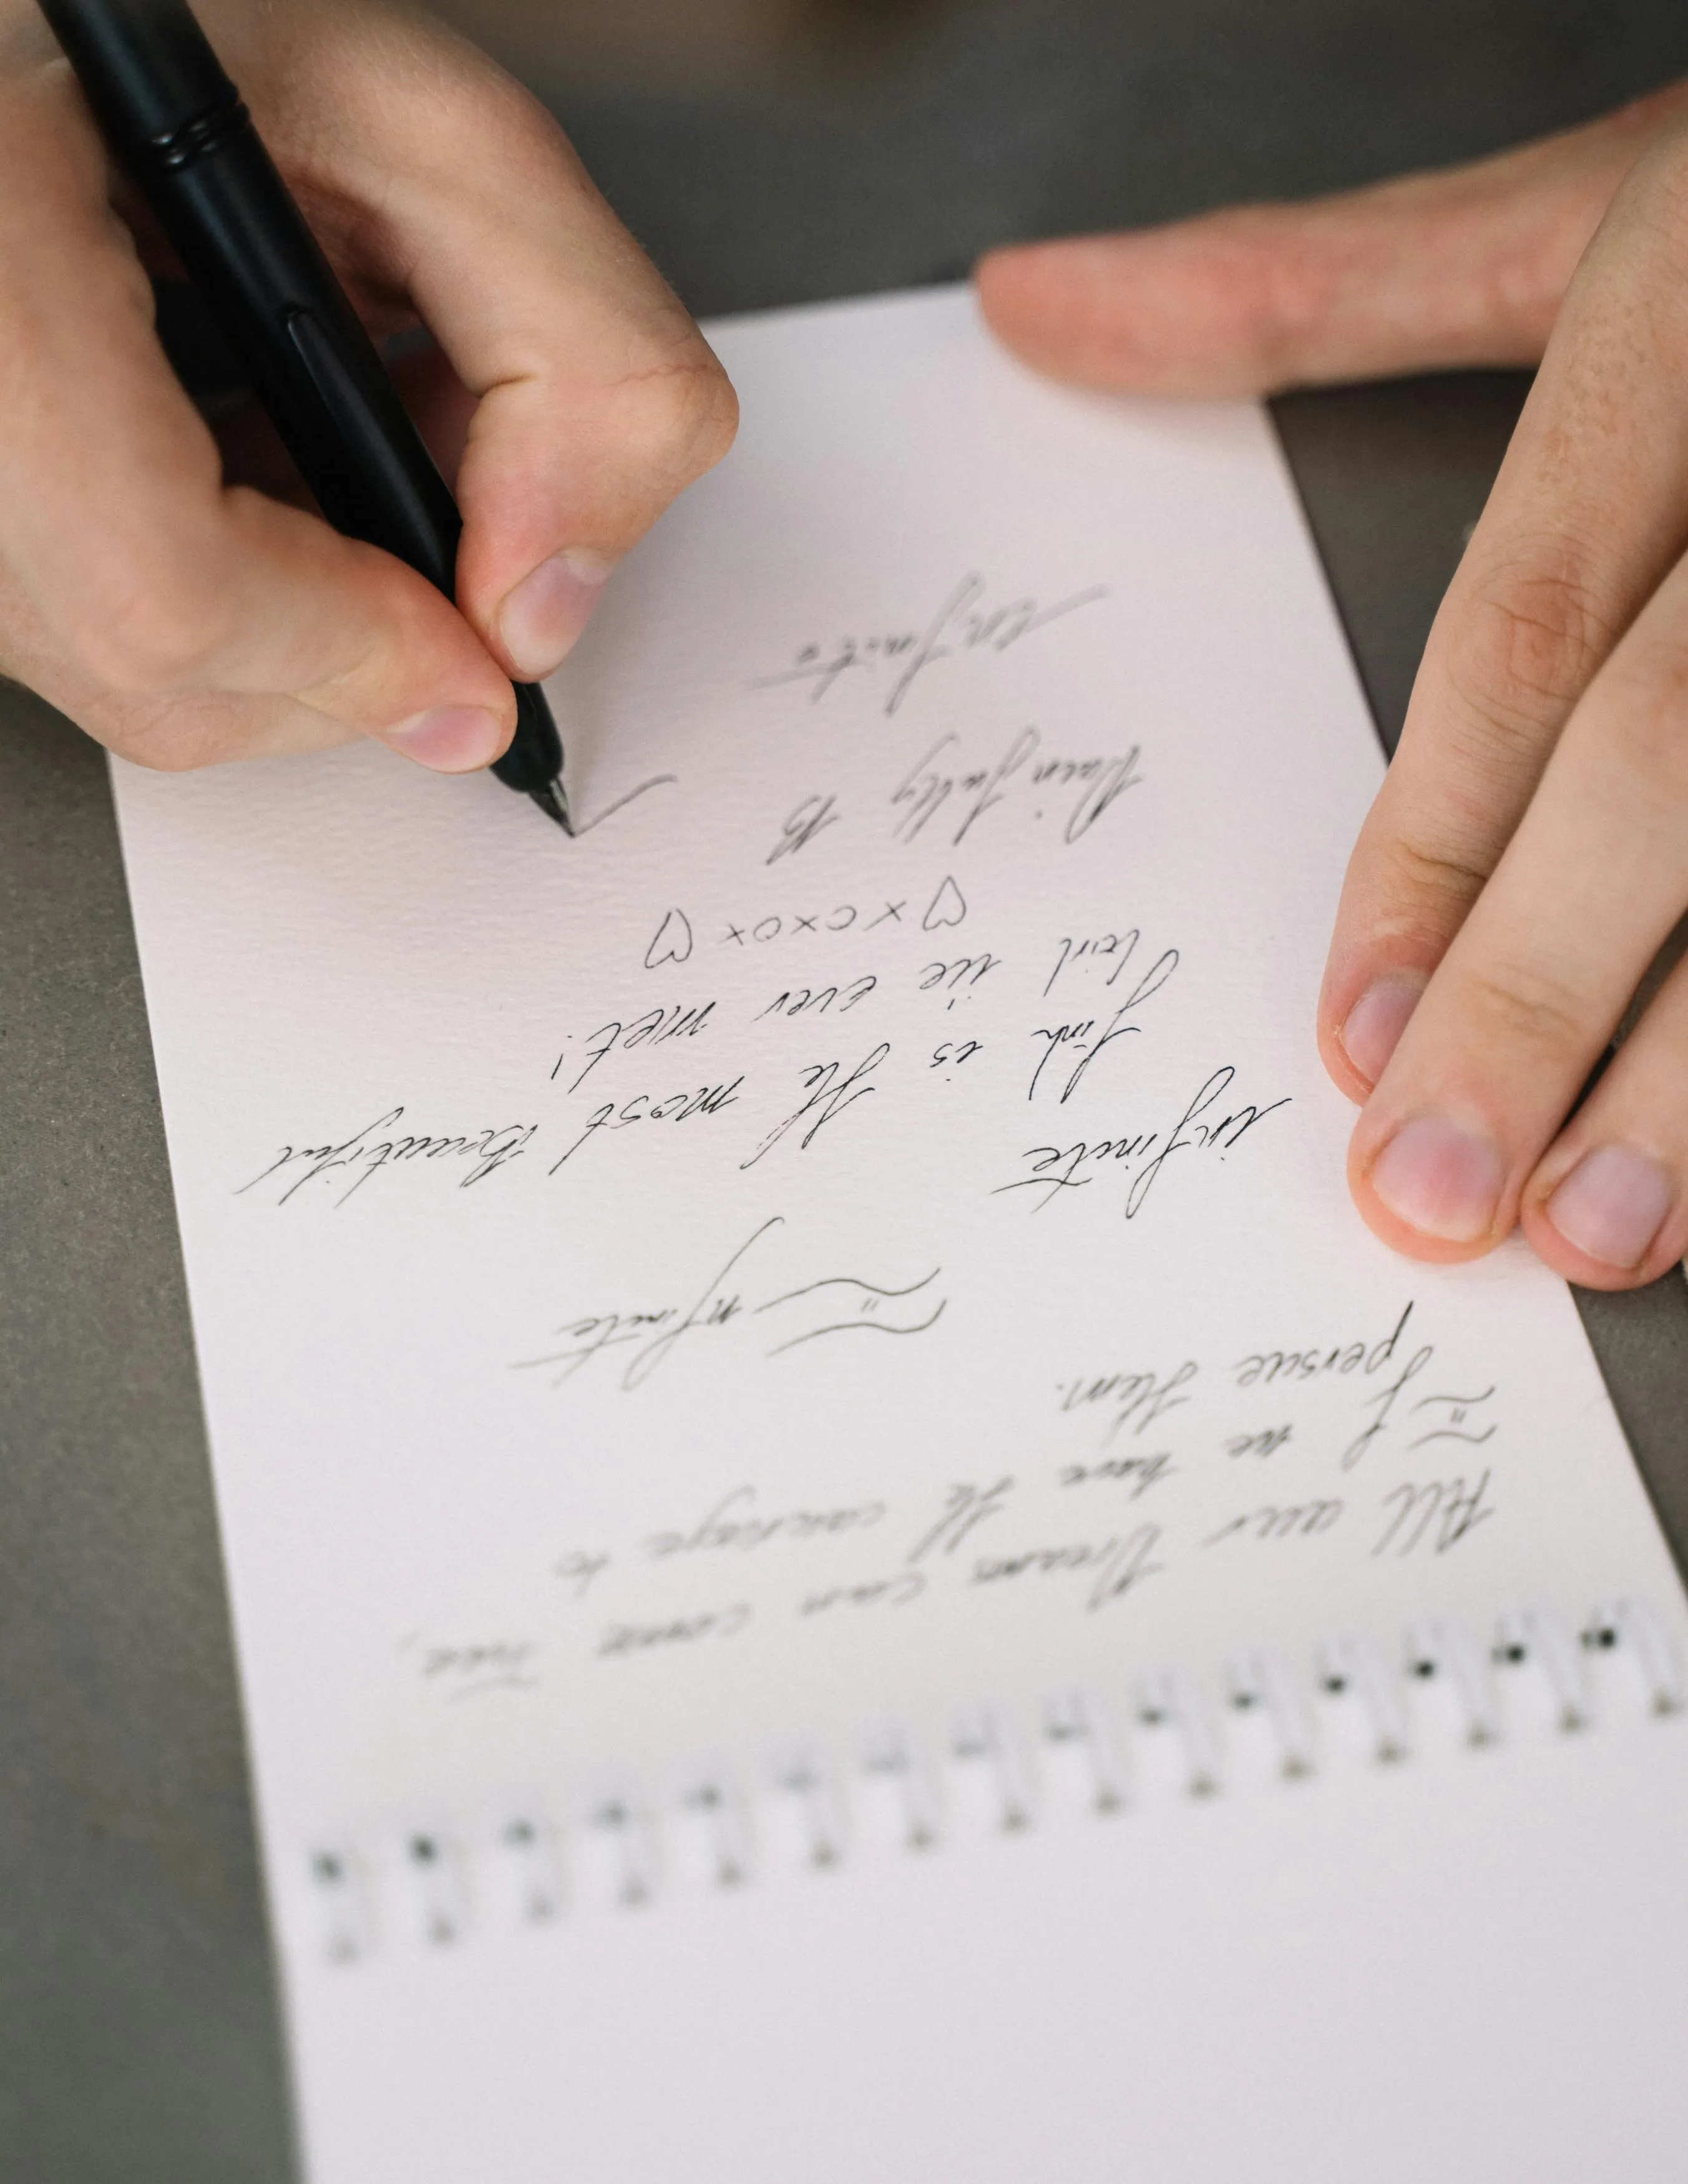 All our Dreams can come True,
if we have the courage to
persue them.
nfinite
infinite
Jink is the most Beautiful
Girl ive ever met!
♡xoxox♡
Painfully B
infinite